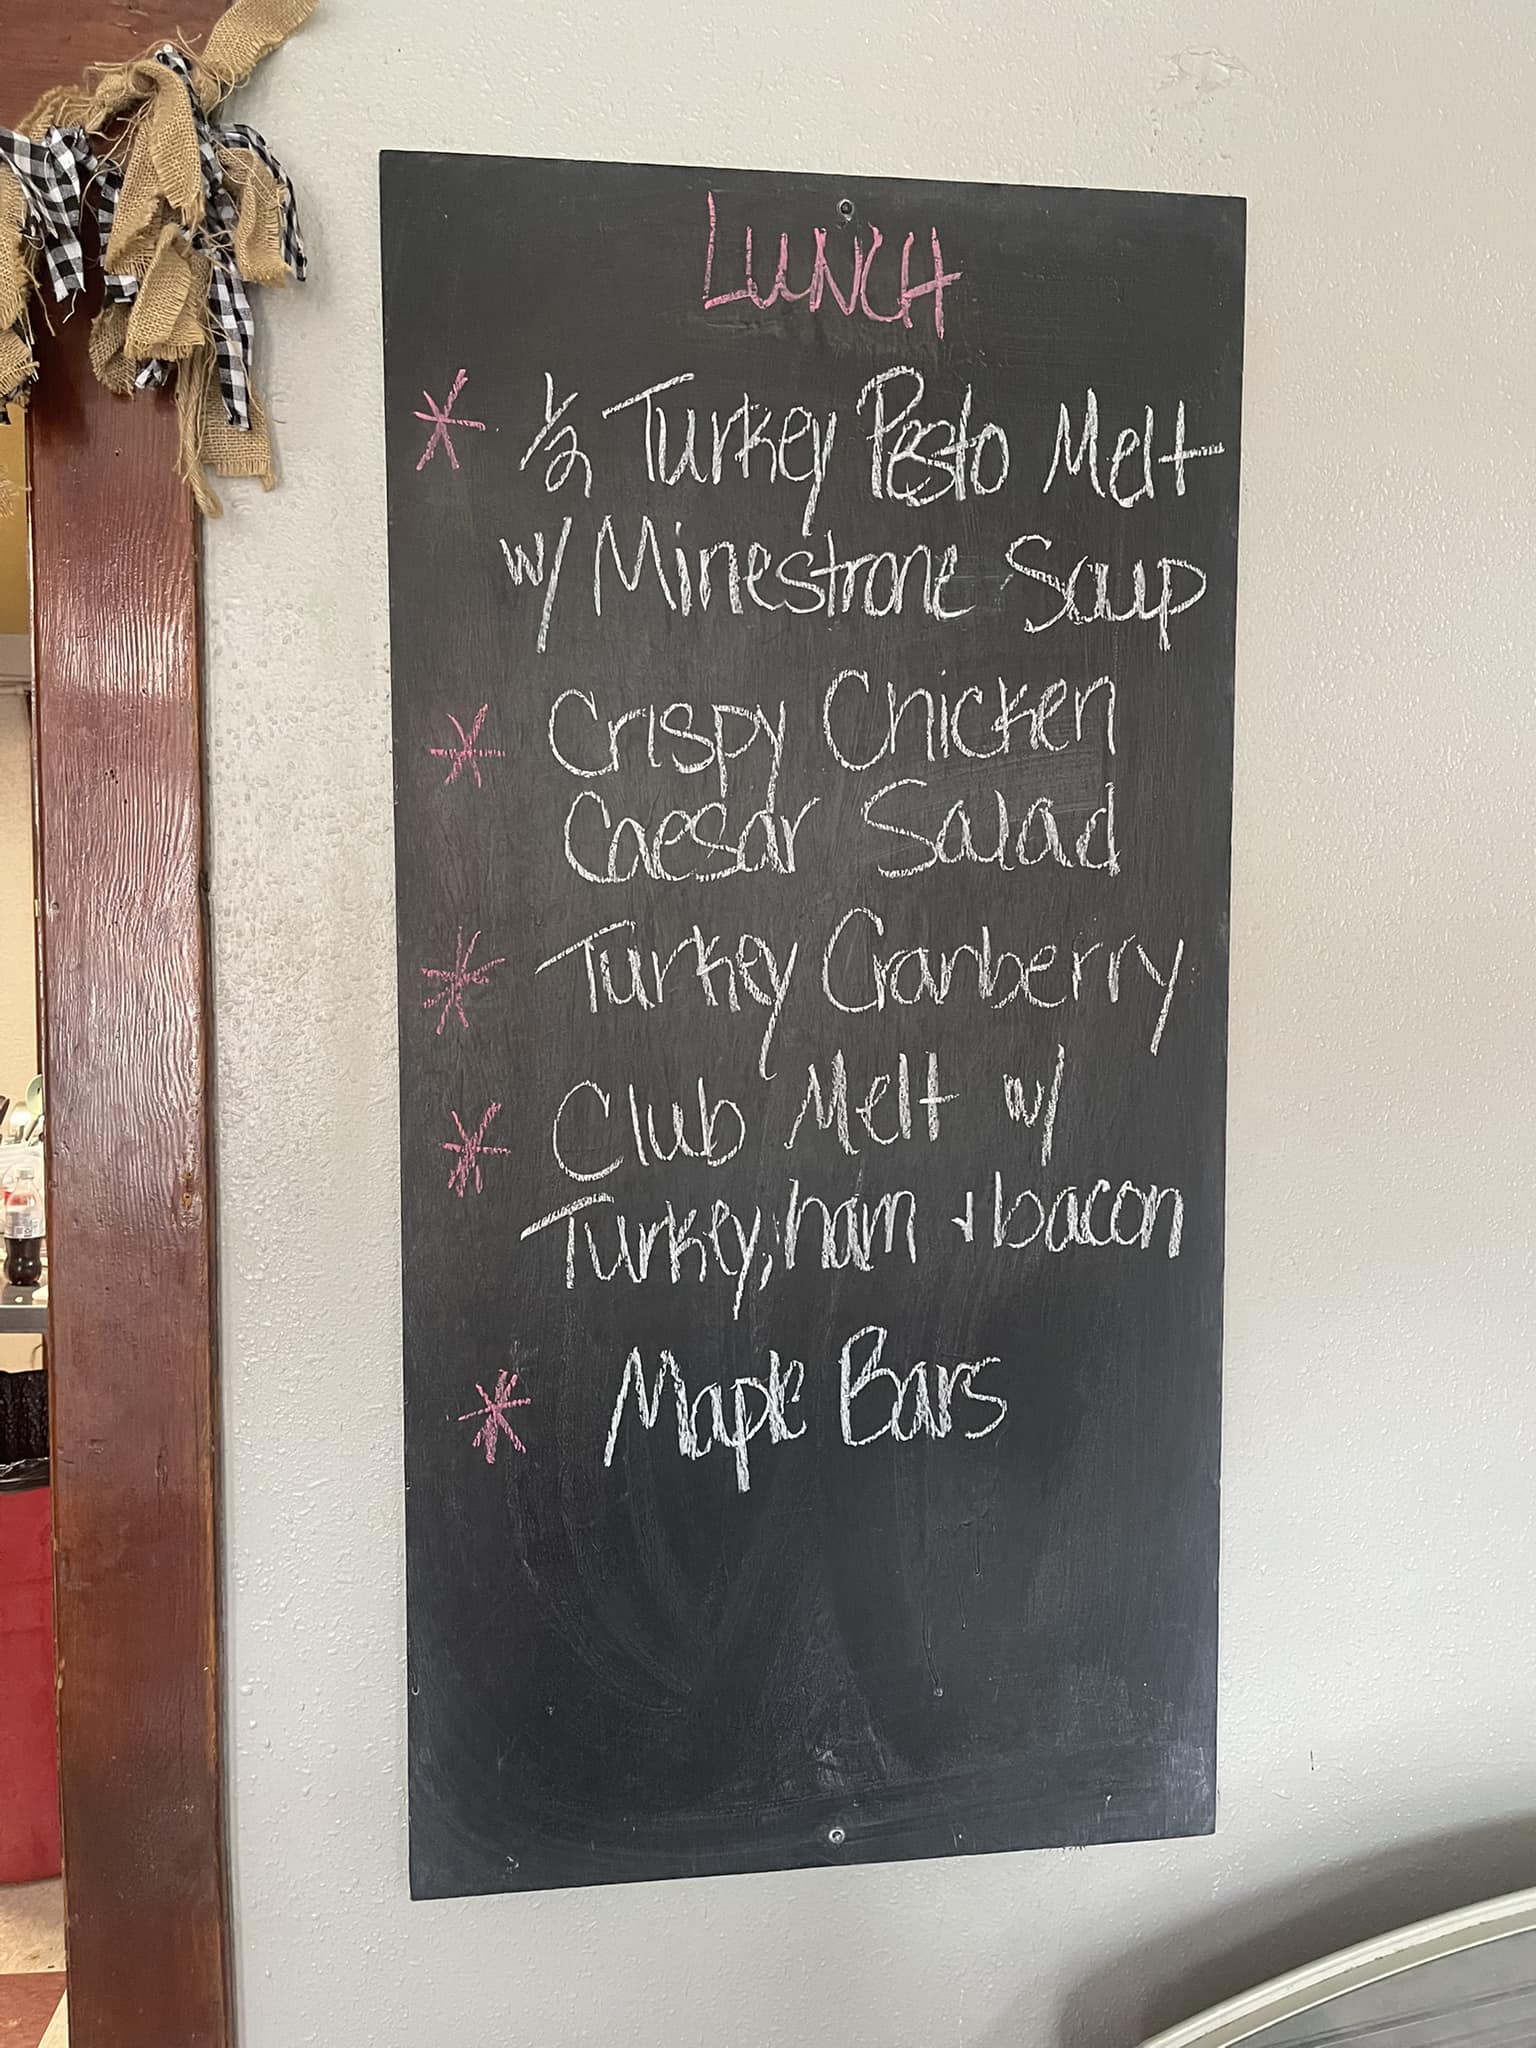 LUNCH
* 1/2 Turkey Pesto Melt
w/ Minestrone Soup
* Crispy Chicken
Caesar Salad
* Turkey Cranberry
* Club Melt w/
Turkey, ham + bacon
* Maple Bars